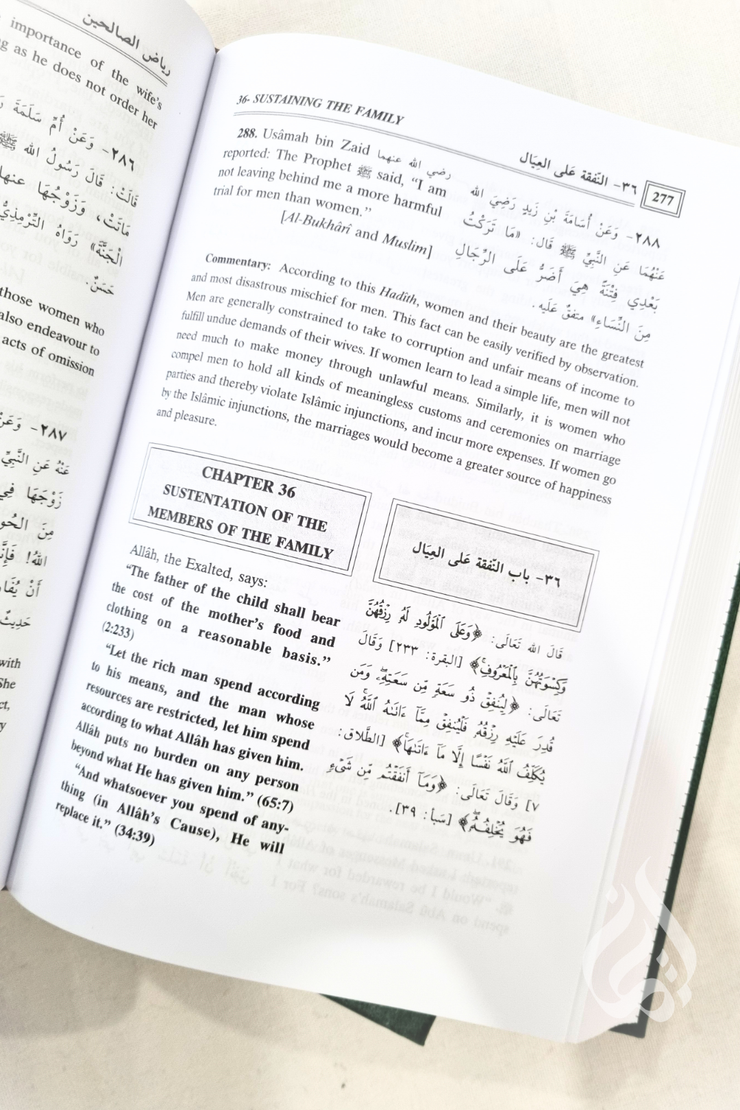 رياض الصالحين
importance of the wife's
as he does not order her
٢٨٦- وَعَنْ أُمِّ سَلَمَةَ
قَالَتْ: قَالَ رَسُولُ اللهِ ﷺ
مَاتَتْ، وَزَوْجُهَا عنها
الْجَنَّةَ» رَوَاهُ التِّرْمِذِيُّ
حَسَنٌ.
those women who
also endeavour to
acts of omission
٢٨٧- وَعَنْ
عَنْهُ عَنِ النَّبِيِّ
زَوْجَهَا فِي
مِنَ الْحُورِ
اللهُ! فَإِنَّمَا
أَنْ يُفَارِ
حَدِيثٌ
with
She
36- SUSTAINING THE FAMILY
٣٦- النّفقة عَلى العِيَال
277
288. Usâmah bin Zaid رضي الله عنهما
reported: The Prophet ﷺ said, "I am
not leaving behind me a more harmful
trial for men than women."
[Al-Bukhârî and Muslim]
٢٨٨- وَعَنْ أُسَامَةَ بْنِ زَيْدٍ رَضِيَ الله
عَنْهُمَا عَنِ النَّبِيِّ ﷺ قَالَ: «مَا تَرَكْتُ
بَعْدِي فِتْنَةً هِيَ أَضَرُّ عَلَى الرِّجَالِ
مِنَ النِّسَاءِ» متفقٌ عَلَيه.
Commentary: According to this Hadîth, women and their beauty are the greatest
and most disastrous mischief for men. This fact can be easily verified by observation.
Men are generally constrained to take to corruption and unfair means of income to
fulfill undue demands of their wives. If women learn to lead a simple life, men will not
need much to make money through unlawful means. Similarly, it is women who
compel men to hold all kinds of meaningless customs and ceremonies on marriage
parties and thereby violate Islâmic injunctions, and incur more expenses. If women go
by the Islâmic injunctions, the marriages would become a greater source of happiness
and pleasure.
CHAPTER 36
SUSTENTATION OF THE
MEMBERS OF THE FAMILY
٣٦- باب النّفقة عَلى العِيَال
Allâh, the Exalted, says:
"The father of the child shall bear
the cost of the mother's food and
clothing on a reasonable basis."
(2:233)
"Let the rich man spend according
to his means, and the man whose
resources are restricted, let him spend
according to what Allâh has given him.
Allâh puts no burden on any person
beyond what He has given him." (65:7)
"And whatsoever you spend of any-
thing (in Allâh's Cause), He will
replace it." (34:39)
قَالَ الله تَعَالَى: ﴿وَعَلَى الْمَوْلُودِ لَهُ رِزْقُهُنَّ
وَكِسْوَتُهُنَّ بِالْمَعْرُوفِ﴾ [البقرة: ٢٣٣] وَقَالَ
تَعَالَى: ﴿لِيُنفِقْ ذُو سَعَةٍ مِّن سَعَتِهِ وَمَن
قُدِرَ عَلَيْهِ رِزْقُهُ فَلْيُنفِقْ مِمَّا ءَاتَىٰهُ اللَّهُ لَا
يُكَلِّفُ اللَّهُ نَفْسًا إِلَّا مَا ءَاتَىٰهَا﴾ [الطَّلاق:
٧] وَقَالَ تَعَالَى: ﴿وَمَا أَنفَقْتُم مِّن شَيْءٍ
فَهُوَ يُخْلِفُهُ﴾ [سَبأ: ٣٩].